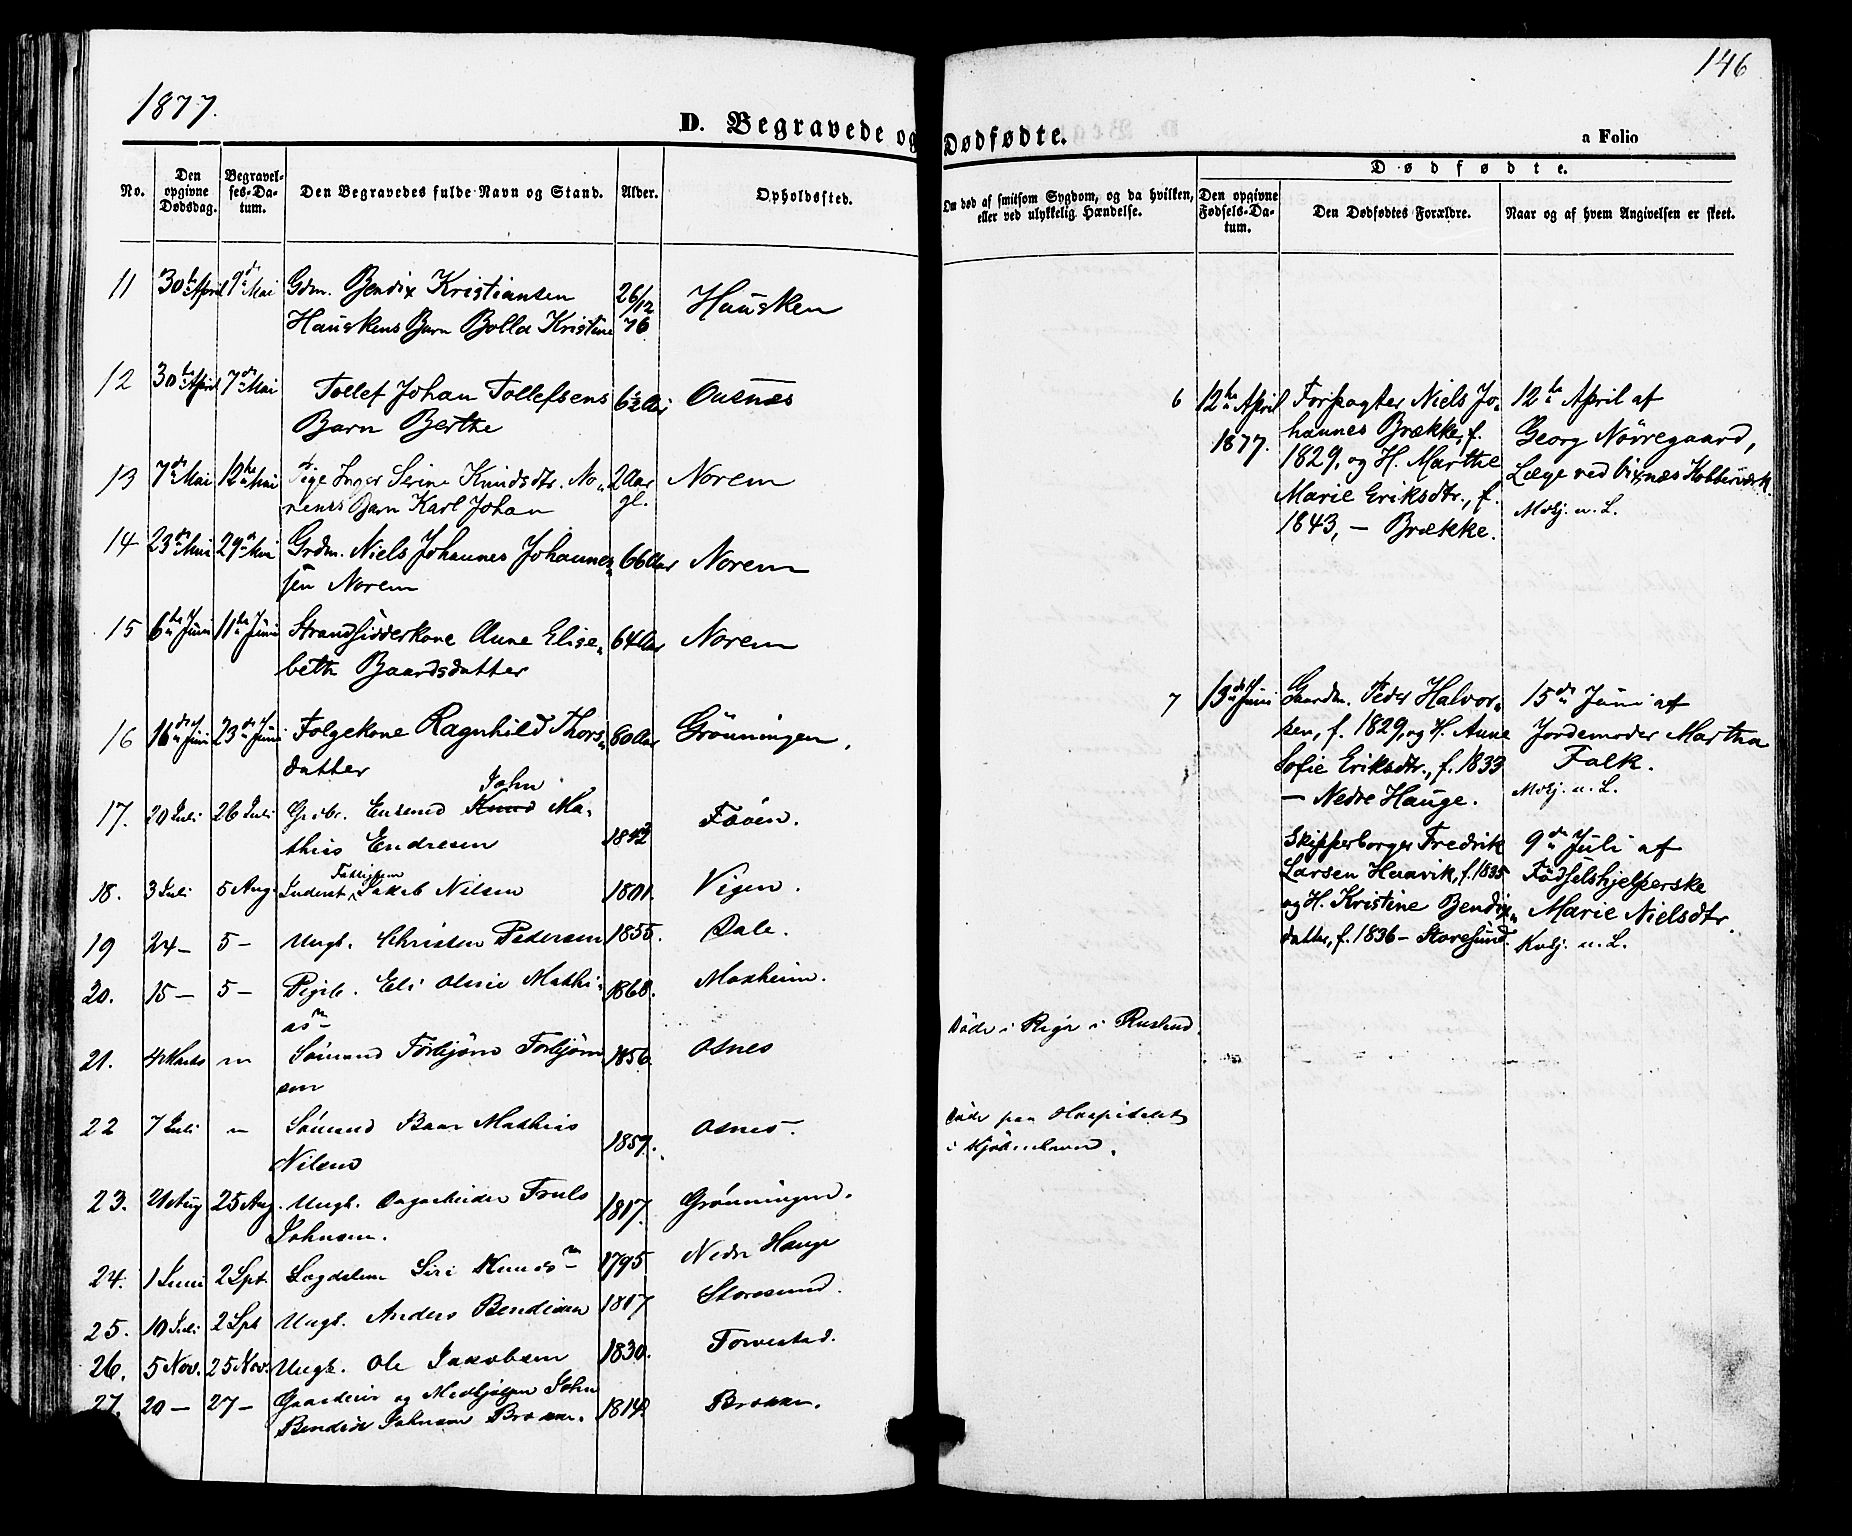 1877.
146
D. Begravede og Dødfødte.
a Folio
No.
Den opgivne Dødsdag.
Begravelses-Datum.
Den Begravedes fulde Navn og Stand.
Alder.
Opholdssted.
Om død af smitsom Sygdom, og da hvilken,
eller ved ulykkelig Hændelse.
Dødfødte.
Den opgivne Fødsels-Datum.
Den Dødfødtes Forældre.
Naar og af hvem Angivelsen er skeet.
11 30te April 9de Mai Gdm. Bendix Kristiansen 26/12 Hausken
Hauskens Barn Bolla Kristine 76
12 30te April 7de Mai Tollef Johan Tollefsens 6½ Ausnæs
Barn Berthe
13 7de Mai 12te Mai Pige Inger Serine Knudsdtr. No- 2 Aar Norem
rems Barn Karl Johan gl.
14 23de Mai 29de Mai Grdm. Niels Johannes Johannes- 66 Aar Norem
sen Norem
15 6te Juni 11te Juni Strandsidderkone Anne Elise- 64 Aar Norem
beth Baardsdatter
16 16de Juni 23de Juni Folgekone Ragnhild Thors- 60 Aar Grönningen.
datter
John
17. 20 Juli 26 Juli Knud Ma- 1842 Fööen.
this Endresen
Fattiglem
18. 3 Juli 5 Aug. Inderst Jakob Nilsen 1801. Vigen.
19 24 — 5 — Ungk. Christen Pedersen 1855. Dale.
20. 15 — 5 — Pigeb. Eli Oline Mathi- 1868. Moxheim.
asdn
21. 4 Marts " Sömand Torbjörn Torbjörn 1856. Osnes
sen
22 7 Juli " Sömand Baar Mathias 1857. Osnes.
Nilsen
23. 21 Aug 25 Aug. Ungk. Dagarbeider Truls 1817. Grönningen.
Johnsen.
24. 1 Juni 2 Spt. Lægdslem Siri Knudsdn 1795 Nedre Hauge
25. 10 Juli 2 Spt Ungk. Anders Bendixen 1817 Storesund.
26. 5 Nov. 25 Nov. Ungk. Ole Jakobsen 1830. Torvestad.
27. 20 — 27 — Gaardeier og Medhjelper John
Bendix Johnsen Broen. 1814. Broen.
Döde i Riga i Rusland.
Döde paa Hospitalet
i Kjöbenhavn.
6 12te April 1877. Forpagter Niels Jo-
hannes Brække, f.
1829, og H. Marthe
Marie Eriksdtr., f.
1843, — Brække.
12te April af
Georg Nörregaard,
Læge ved Vixnæs Kobberværk.
Mobj. u. L.
7 13de Juni Gaardm. Peder Halvor-
sen, f. 1829, og H. Anne
Sofie Eriksdtr., f. 1833
— Nedre Hauge.
15de Juni af
Jordemoder Martha
Falk.
Mobj. u. L.
Skipperborger Fredrik
Larsen Haavik, f. 1835
og H. Kristine Bendix-
datter, f. 1836 — Storesund.
9de Juli af
Födselshjelperske
Marie Nielsdtr.
Kobj. u. L.